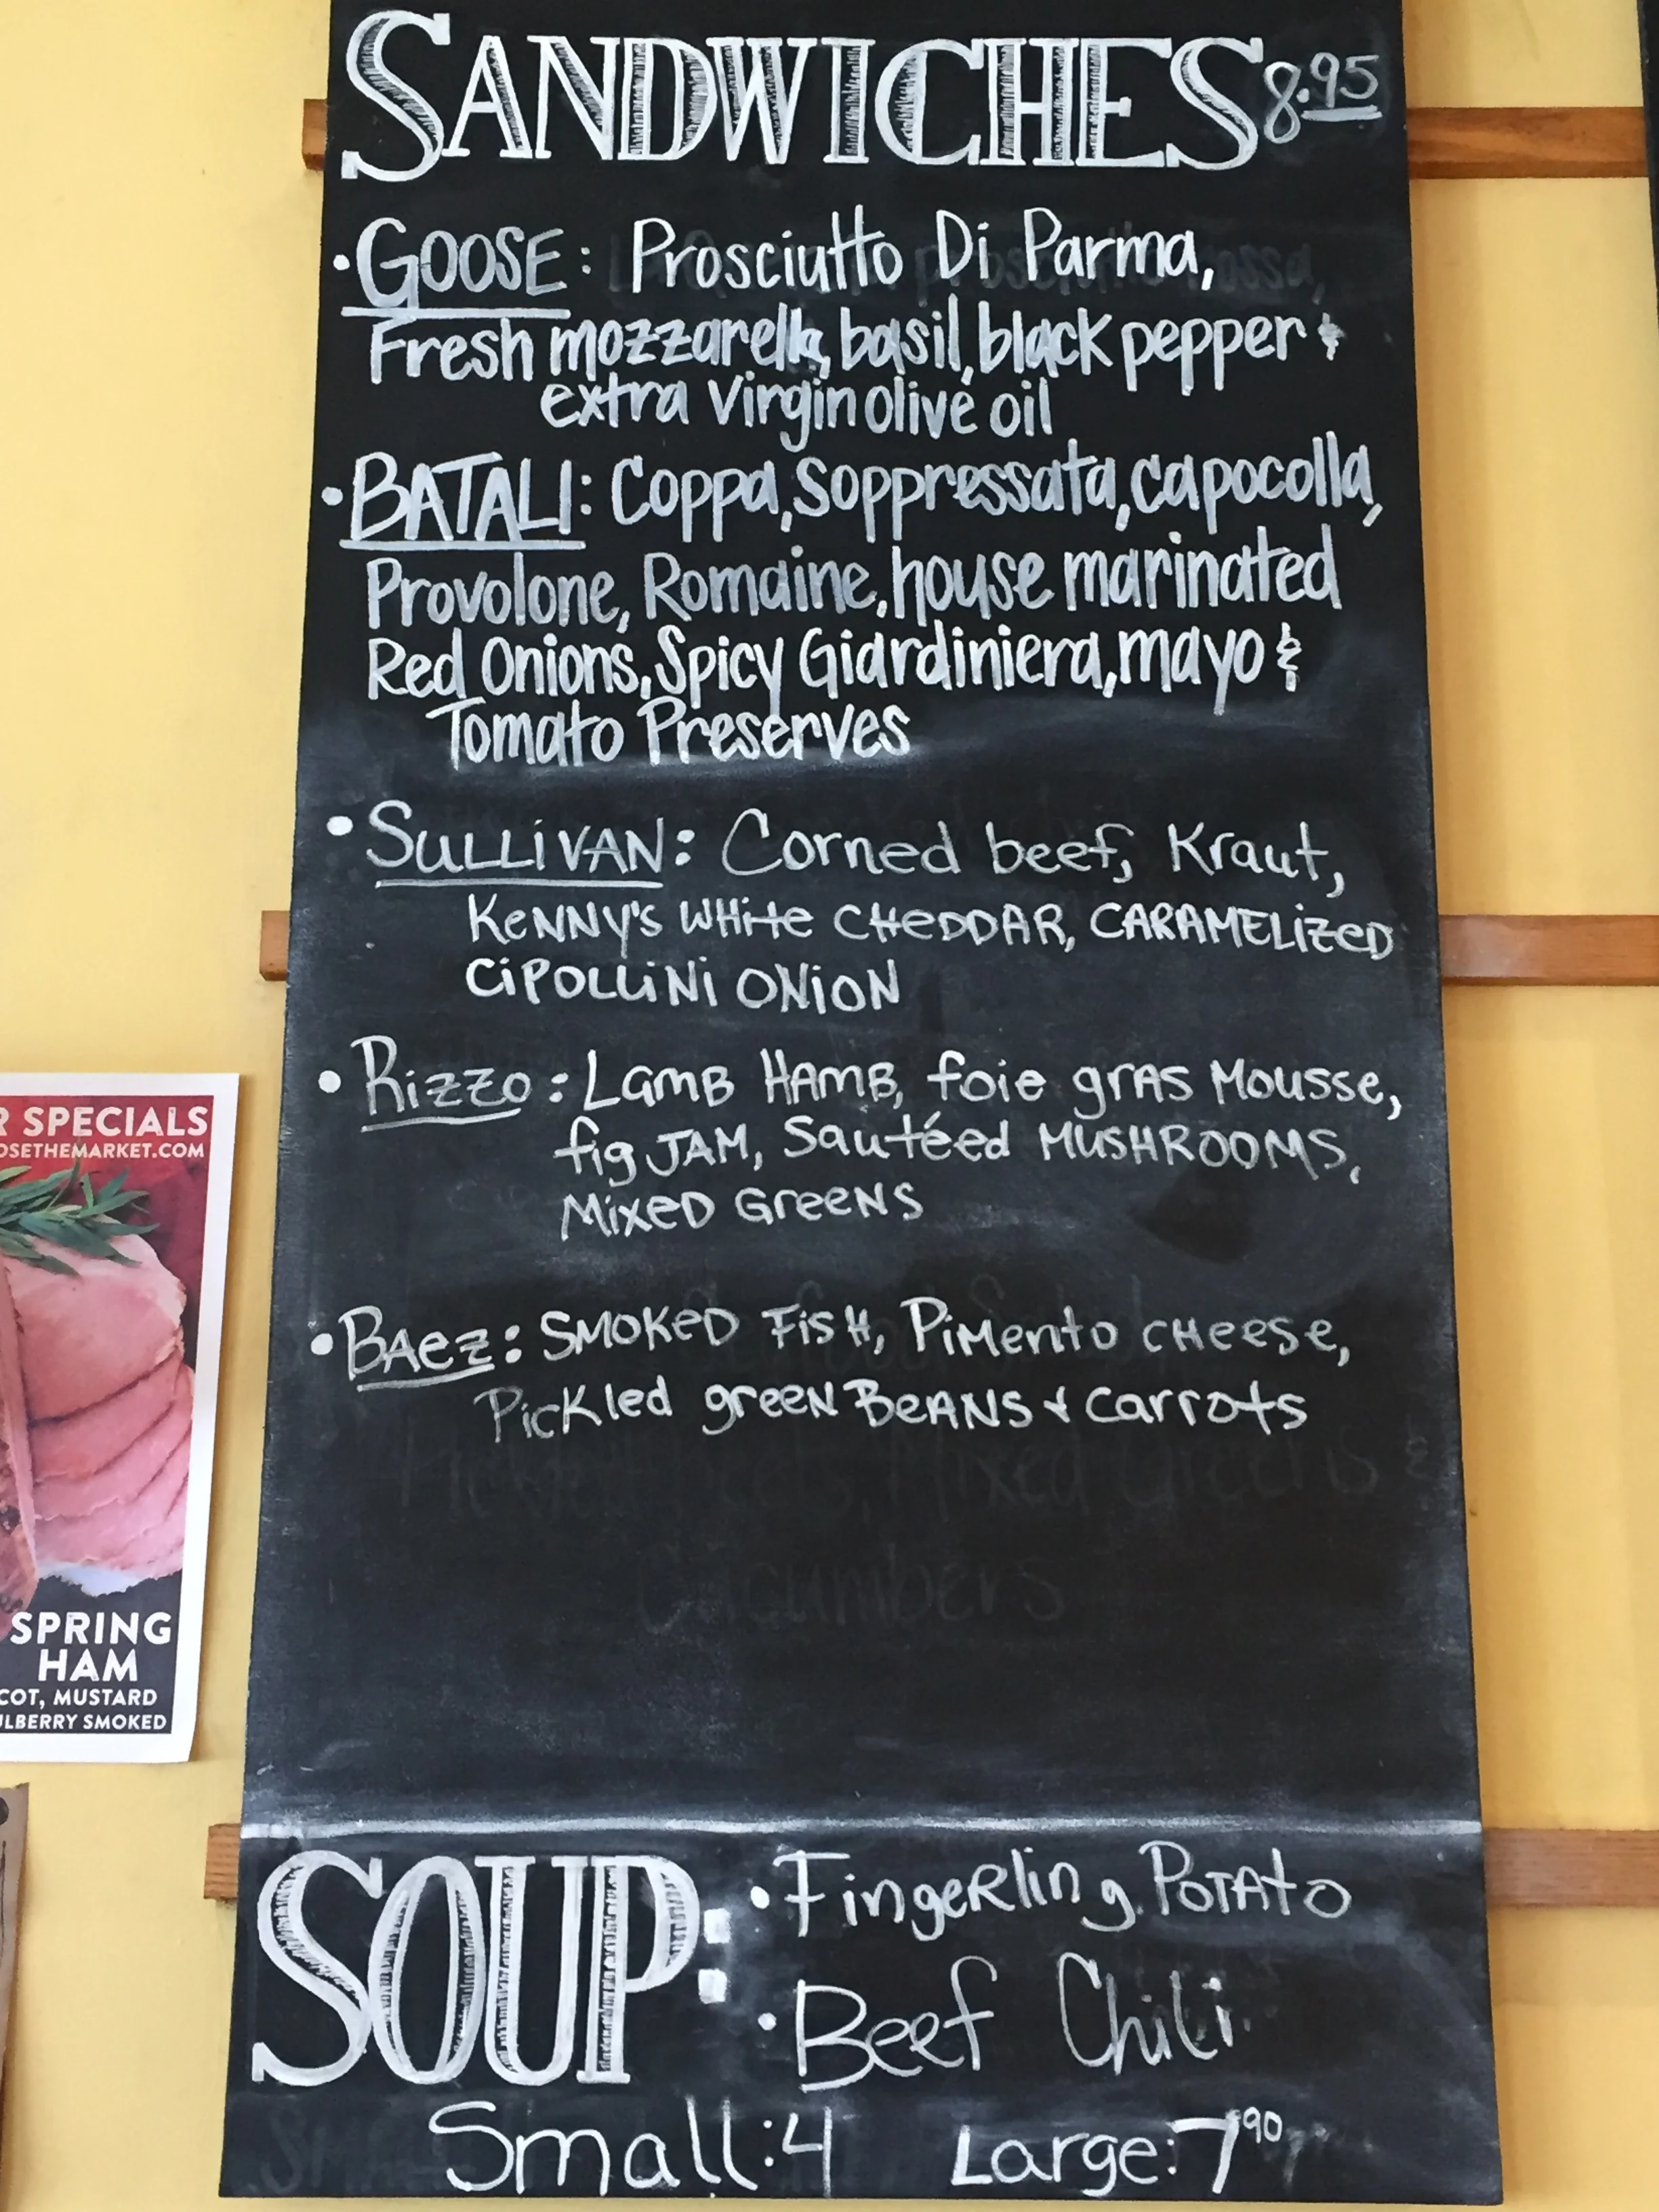 SANDWICHES 8.95
• GOOSE: Prosciutto Di Parma,
Fresh mozzarella, basil, black pepper &
extra virgin olive oil
• BATALI: Coppa, Soppressata, capocolla,
Provolone, Romaine, house marinated
Red Onions, Spicy Giardiniera, mayo &
Tomato Preserves
• SULLiVAN: Corned beef, Kraut,
KeNNY's WHite CHeDDAR, CARAMELizeD
CiPOLLiNi ONiON
• Rizzo: LamB HAmB, foie grAS Mousse,
fig JAM, Sautéed MUSHROOMS,
MixeD GreeNS
• BAez: SMOKeD FisH, PiMento CHeese,
PicKled greeN BeANS & carrots
SOUP: • FingeRling POTAto
• Beef Chili
Small: 4 Large: 7 90
R SPECIALS
OSETHEMARKET.COM
SPRING
HAM
COT, MUSTARD
LBERRY SMOKED